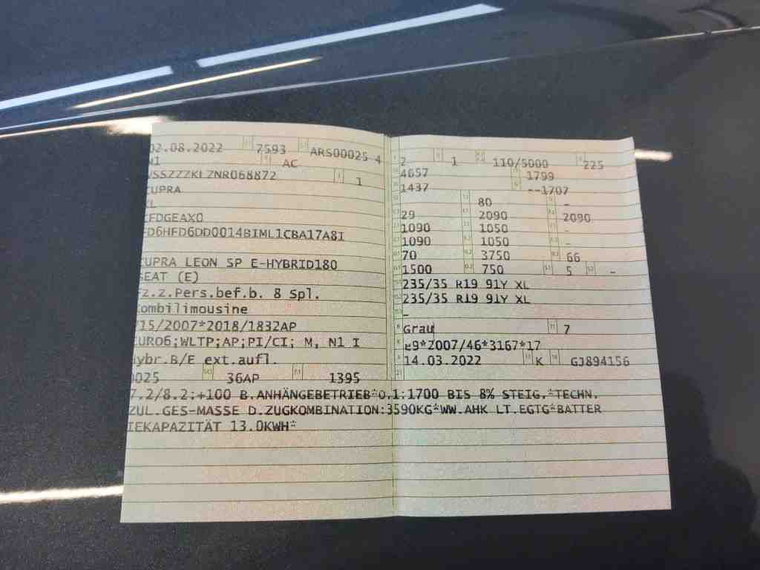 02.08.2022 7593 ARS00025 4
M1 AC
VSSZZZKLZNR068872 1
CUPRA
KL
FDGEAX0
FD6HFD6DD0014BIML1CBA17A8I
CUPRA LEON SP E-HYBRID180
SEAT (E)
Fz.z.Pers.bef.b. 8 Spl.
Kombilimousine
715/2007*2018/1832AP
EURO6;WLTP;AP;PI/CI; M, N1 I
Hybr.B/E ext.aufl.
0025 36AP 1395
2 1 110/5000 225
4657 1799
1437 --1707
80 -
29 2090 2090
1090 1050 -
1090 1050 -
70 3750 66
1500 750 5 -
235/35 R19 91Y XL
235/35 R19 91Y XL
-
Grau 7
e9*2007/46*3167*17
14.03.2022 K GJ894156
7.2/8.2:+100 B.ANHÄNGEBETRIEB*O.1:1700 BIS 8% STEIG.*TECHN.
ZUL.GES-MASSE D.ZUGKOMBINATION:3590KG*WW.AHK LT.EGTG*BATTER
IEKAPAZITÄT 13.0KWH*